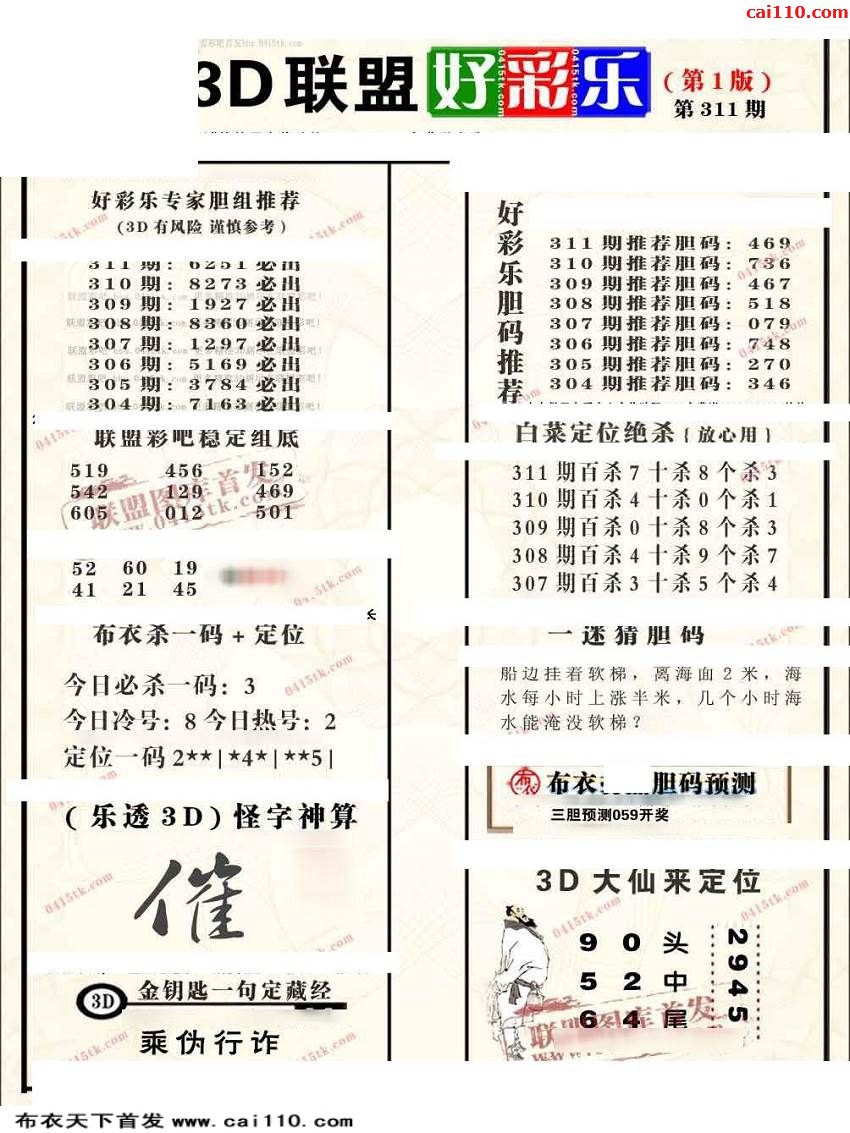 cai110.com
3D联盟好彩乐
(第1版)
第311期
好彩乐专家胆组推荐
(3D有风险 谨慎参考)
311期：6251必出
310期：8273必出
309期：1927必出
308期：8360必出
307期：1297必出
306期：5169必出
305期：3784必出
304期：7163必出
联盟彩吧稳定组底
519 456 152
542 129 469
605 012 501
52 60 19
41 21 45
布衣杀一码+定位
今日必杀一码：3
今日冷号：8 今日热号：2
定位一码2**|*4*|**5|
(乐透3D)怪字神算
催
3D 金钥匙一句定藏经
乘伪行诈
好彩乐胆码推荐
311期推荐胆码：469
310期推荐胆码：736
309期推荐胆码：467
308期推荐胆码：518
307期推荐胆码：079
306期推荐胆码：748
305期推荐胆码：270
304期推荐胆码：346
白菜定位绝杀{放心用}
311期百杀7十杀8个杀3
310期百杀4十杀0个杀1
309期百杀0十杀8个杀3
308期百杀4十杀9个杀7
307期百杀3十杀5个杀4
一迷猜胆码
船边挂着软梯，离海面2米，海
水每小时上涨半米，几个小时海
水能淹没软梯？
布衣 胆码预测
三胆预测059开奖
3D大仙来定位
9 0 头
5 2 中
6 4 尾
2945
联盟图库首发
0415tk.com
布衣天下首发 www.cai110.com